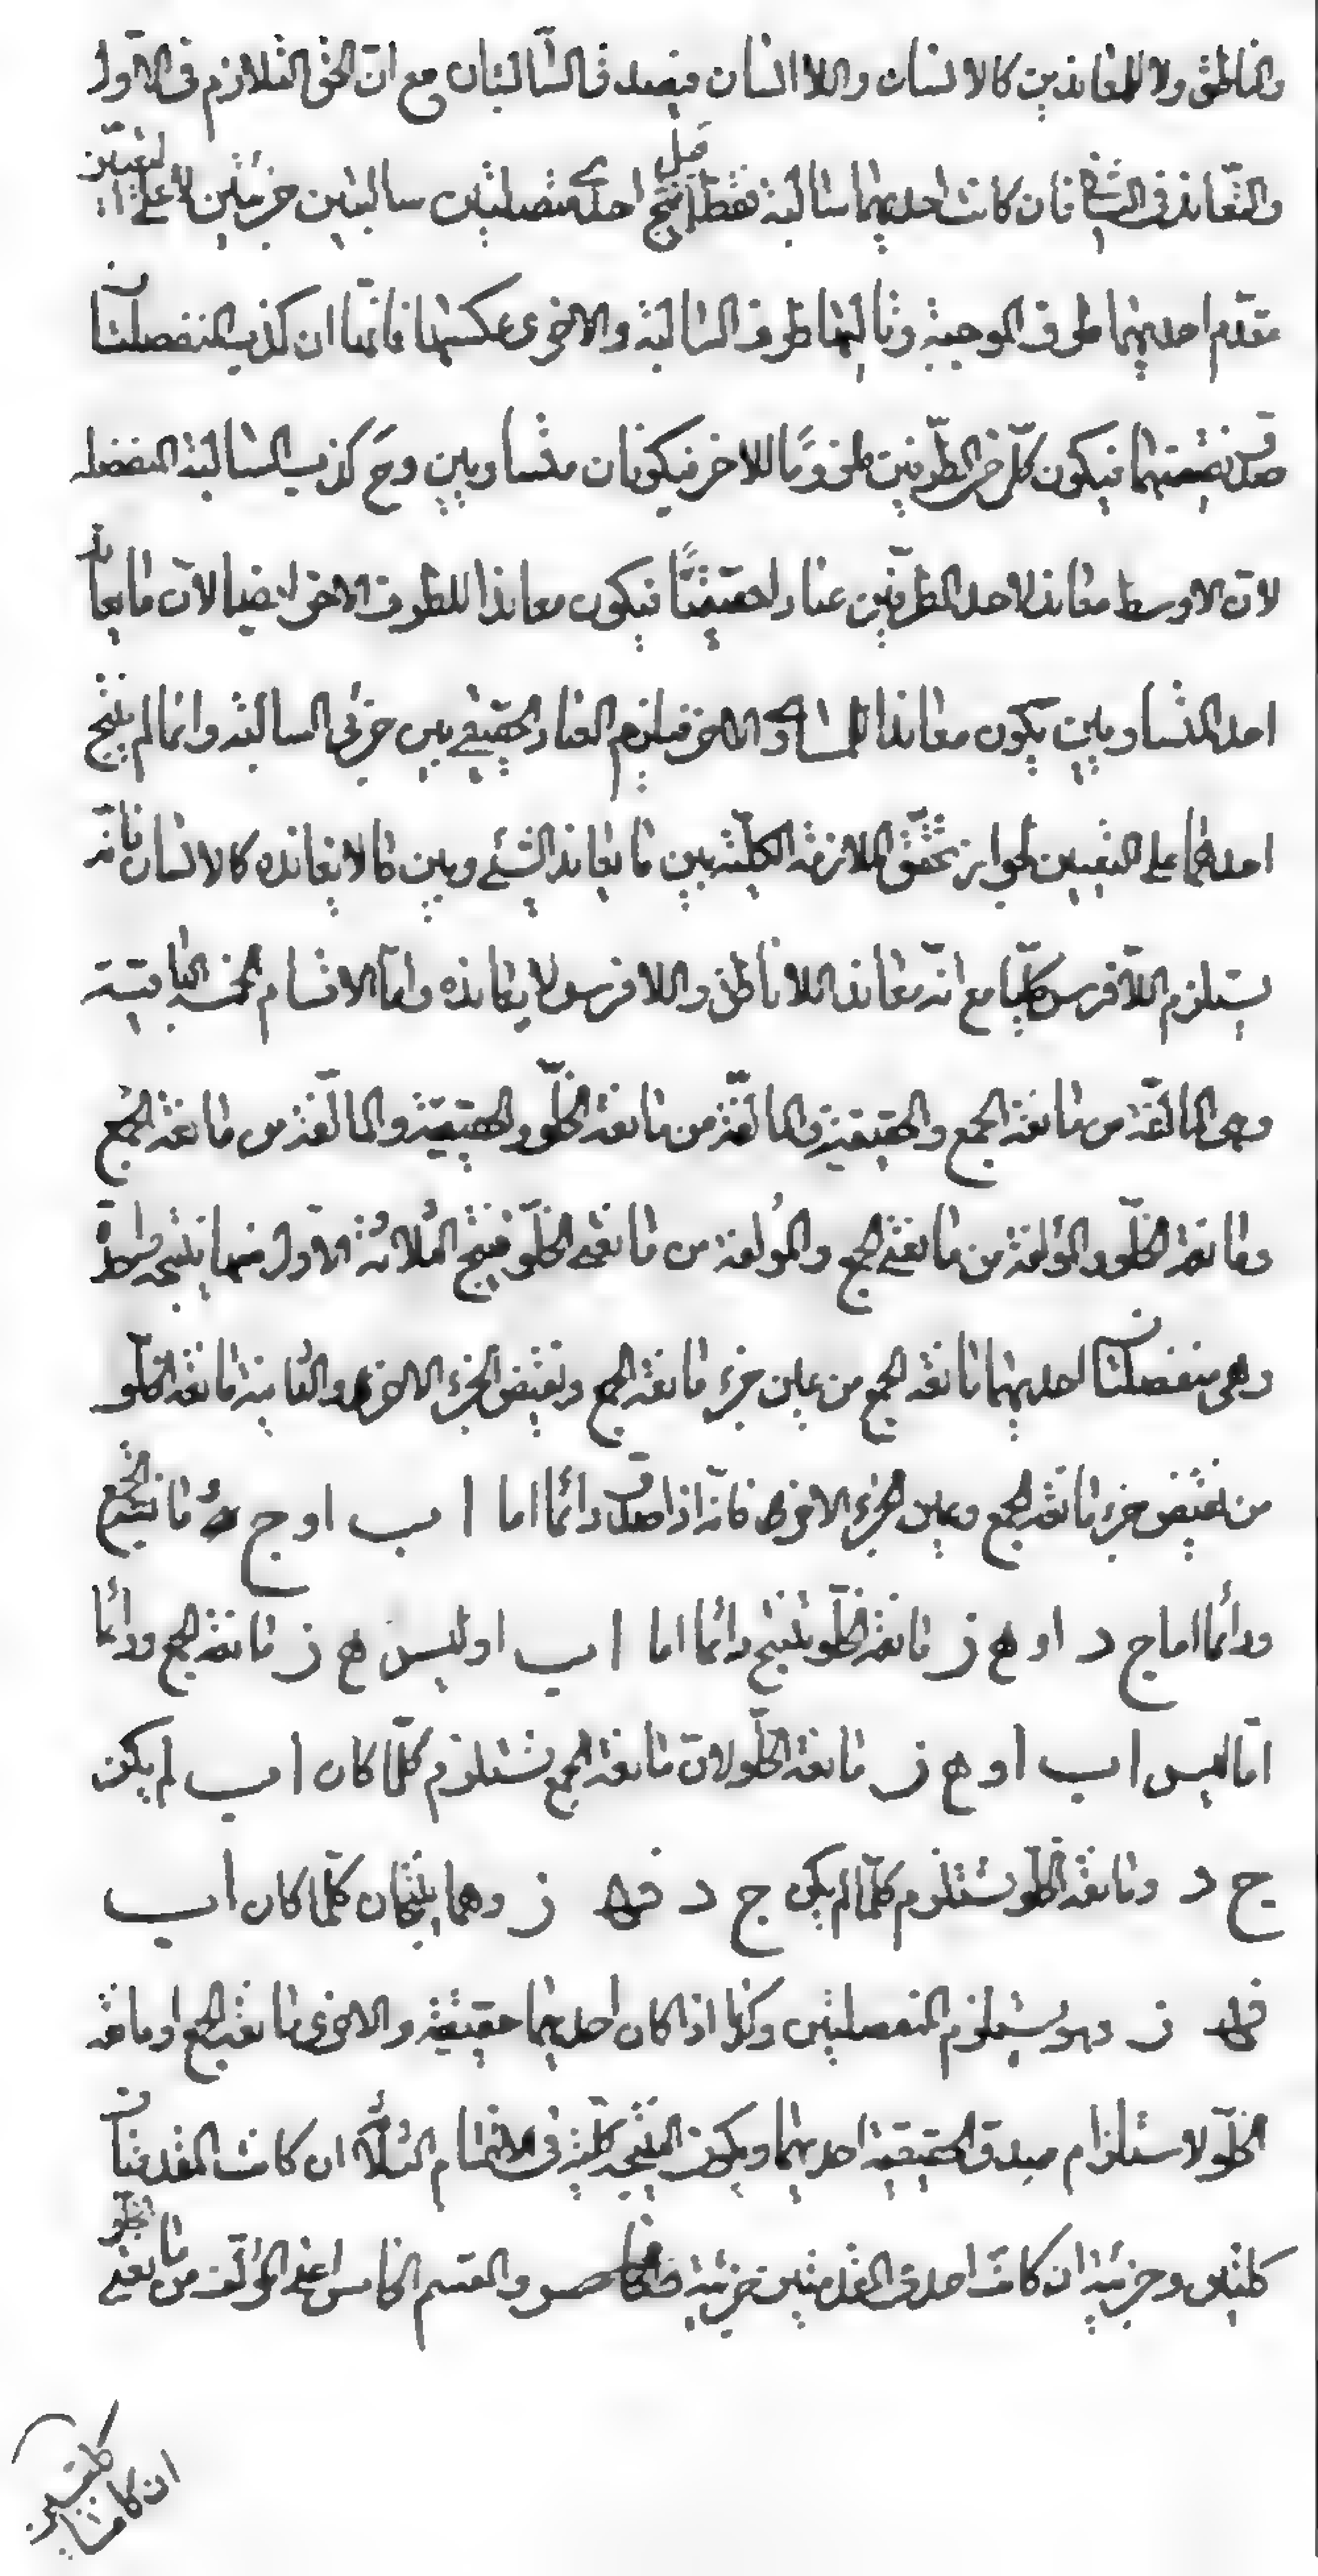 والناطق ولا للمعاندين كالانسان واللاانسان فيصدق السالبتان مع ان الحق التلازم في الاول
والتعاند في الثاني فان كانت احديهما سالبة فقط قيل انتج احدى متصلتين سالبتين جزئيتين لا على التعيين
مقدم احديهما طرف الموجبة وتاليها طرف السالبة والاخرى عكسها فانهما ان كذب المنفصلتان
صدق نقيضهما فيكون كل من الطرفين ملزوما للاخر فيكونان متساويين وح كذب السالبة المنفصلة
لان الاوسط معاند لاحد الطرفين عنادا حقيقيا فيكون معاندا للطرف الاخر ايضا لان ما يعاند
احد المتساويين يكون معاندا للمساوى الاخر فيلزم العناد الحقيقي بين جزئي السالبة وانما لم ينتج
احدهما على التعيين لجواز تحقق الملازمة الكلية بين ما يعاند الشئ وبين ما لا يعانده كالانسان فانه
يستلزم اللافرس كليا مع انه معاند اللاناطق واللافرس لا يعانده واما الاقسام الخمسة الباقية
وهي المالفة من مانعة الجمع والحقيقية والمالفة من مانعة الخلو والحقيقية والمالفة من مانعة الجمع
ومانعة الخلو والمؤلفة من مانعتي الجمع والمؤلفة من مانعتي الخلو فينتج الثلاثة الاول منها نتيجة
وهي منفصلتان احديهما مانعة الجمع من عين جزء مانعة الجمع ونقيض الجزء الاخرى والثانية مانعة الخلو
من نقيض جزء مانعة الجمع وعين الجزء الاخرى فانه اذا صدق دائما اما ا ب او ج د مانعة الجمع
ودائما اما ج د او ه ز مانعة الخلو ينتج دائما اما ا ب او ليس ه ز مانعة الجمع ودائما
اما ليس ا ب او ه ز مانعة الخلو لان مانعة الجمع تستلزم كلما كان ا ب لم يكن
ج د ومانعة الخلو تستلزم كلما لم يكن ج د فه ز وهما ينتجان كلما كان ا ب
فه ز وهو يستلزم المنفصلتين وكذا اذا كان احديهما حقيقية والاخرى مانعة الجمع او مانعة
الخلو لاستلزام صدق الحقيقية احديهما ويكون النتيجة كلية في الاقسام الثلاثة ان كانت المقدمتان
كليتين وجزئية ان كانت احدى المقدمتين جزئية والقسم الخامس اعني المؤلف من مانعتي الخلو
ان كانتا
كليتين